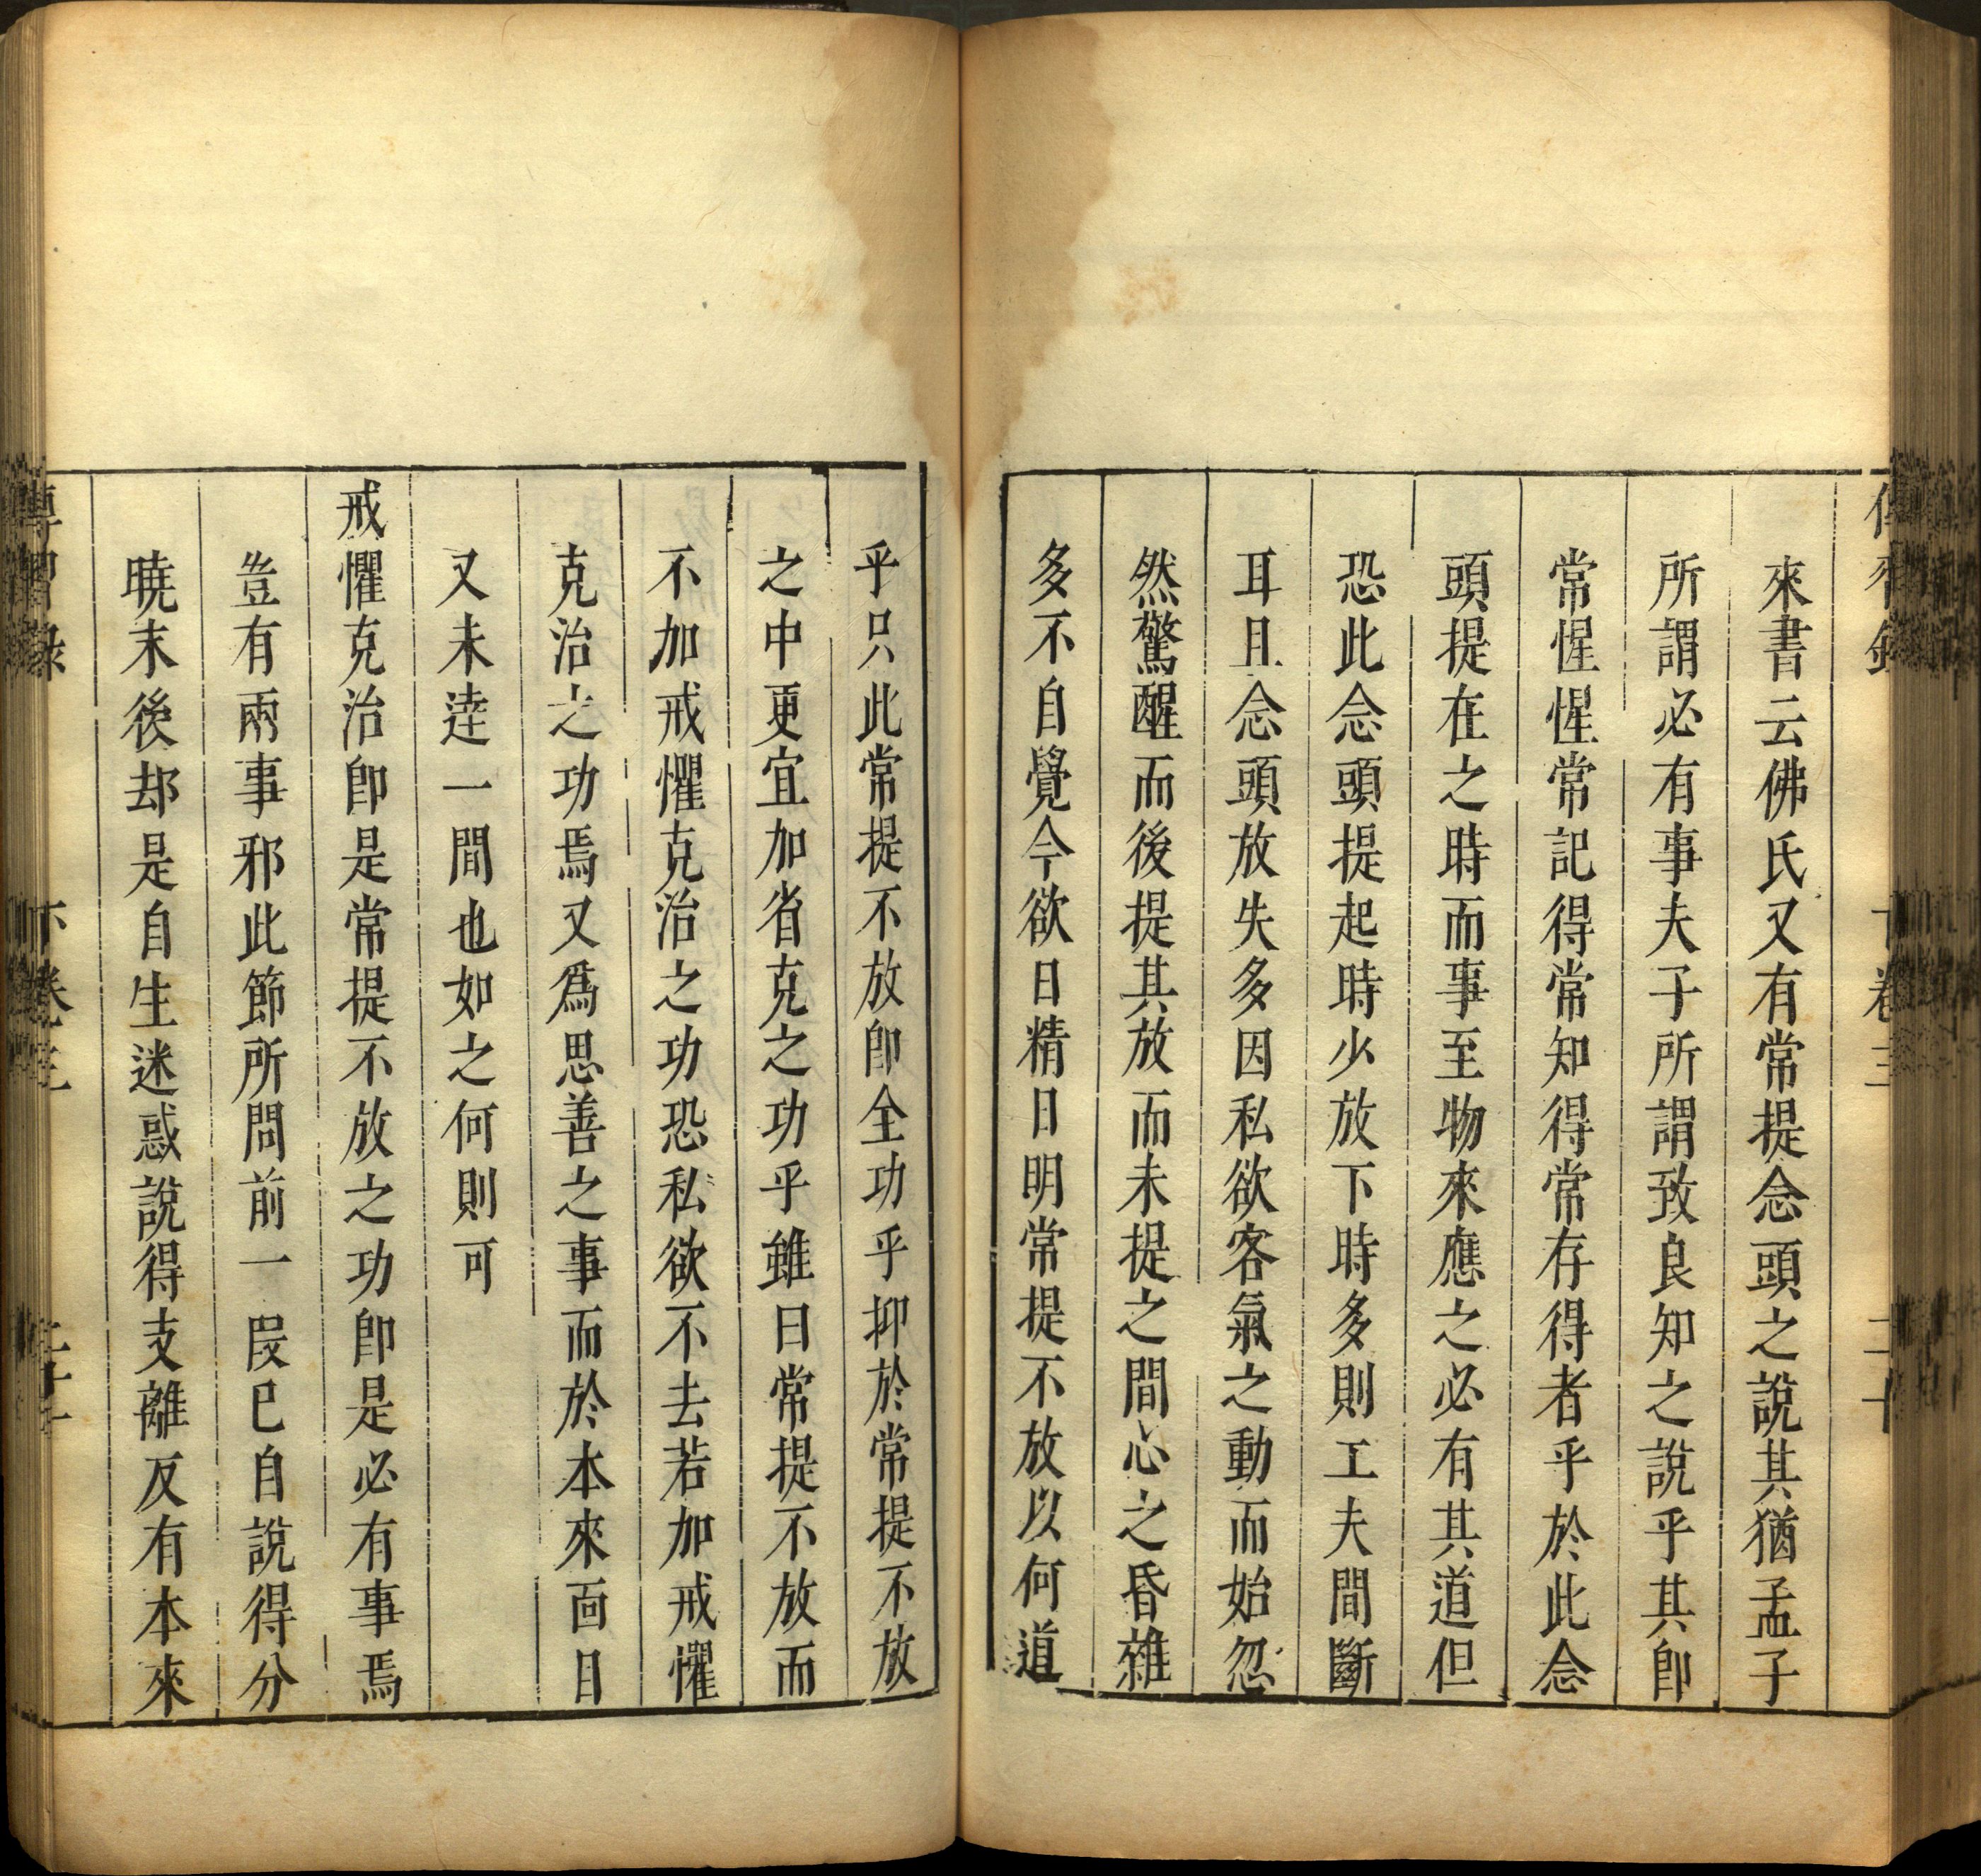 來書云佛氏又有常提念頭之說其猶孟子
所謂必有事夫子所謂致良知之說乎其卽
常惺惺常記得常知得常存得者乎於此念
頭提在之時而事至物來應之必有其道但
恐此念頭提起時少放下時多則工夫間斷
耳且念頭放失多因私欲客氣之動而始忽
然驚醒而後提其放而未提之間心之昏雜
多不自覺今欲日精日明常提不放以何道
乎只此常提不放卽全功乎抑於常提不放
之中更宜加省克之功乎雖曰常提不放而
不加戒懼克治之功恐私欲不去若加戒懼
克治之功焉又爲思善之事而於本來面目
又未達一間也如之何則可
戒懼克治卽是常提不放之功卽是必有事焉
豈有兩事邪此節所問前一段已自說得分
曉末後却是自生迷惑說得支離反有本來
傳習錄 下卷三 二十一